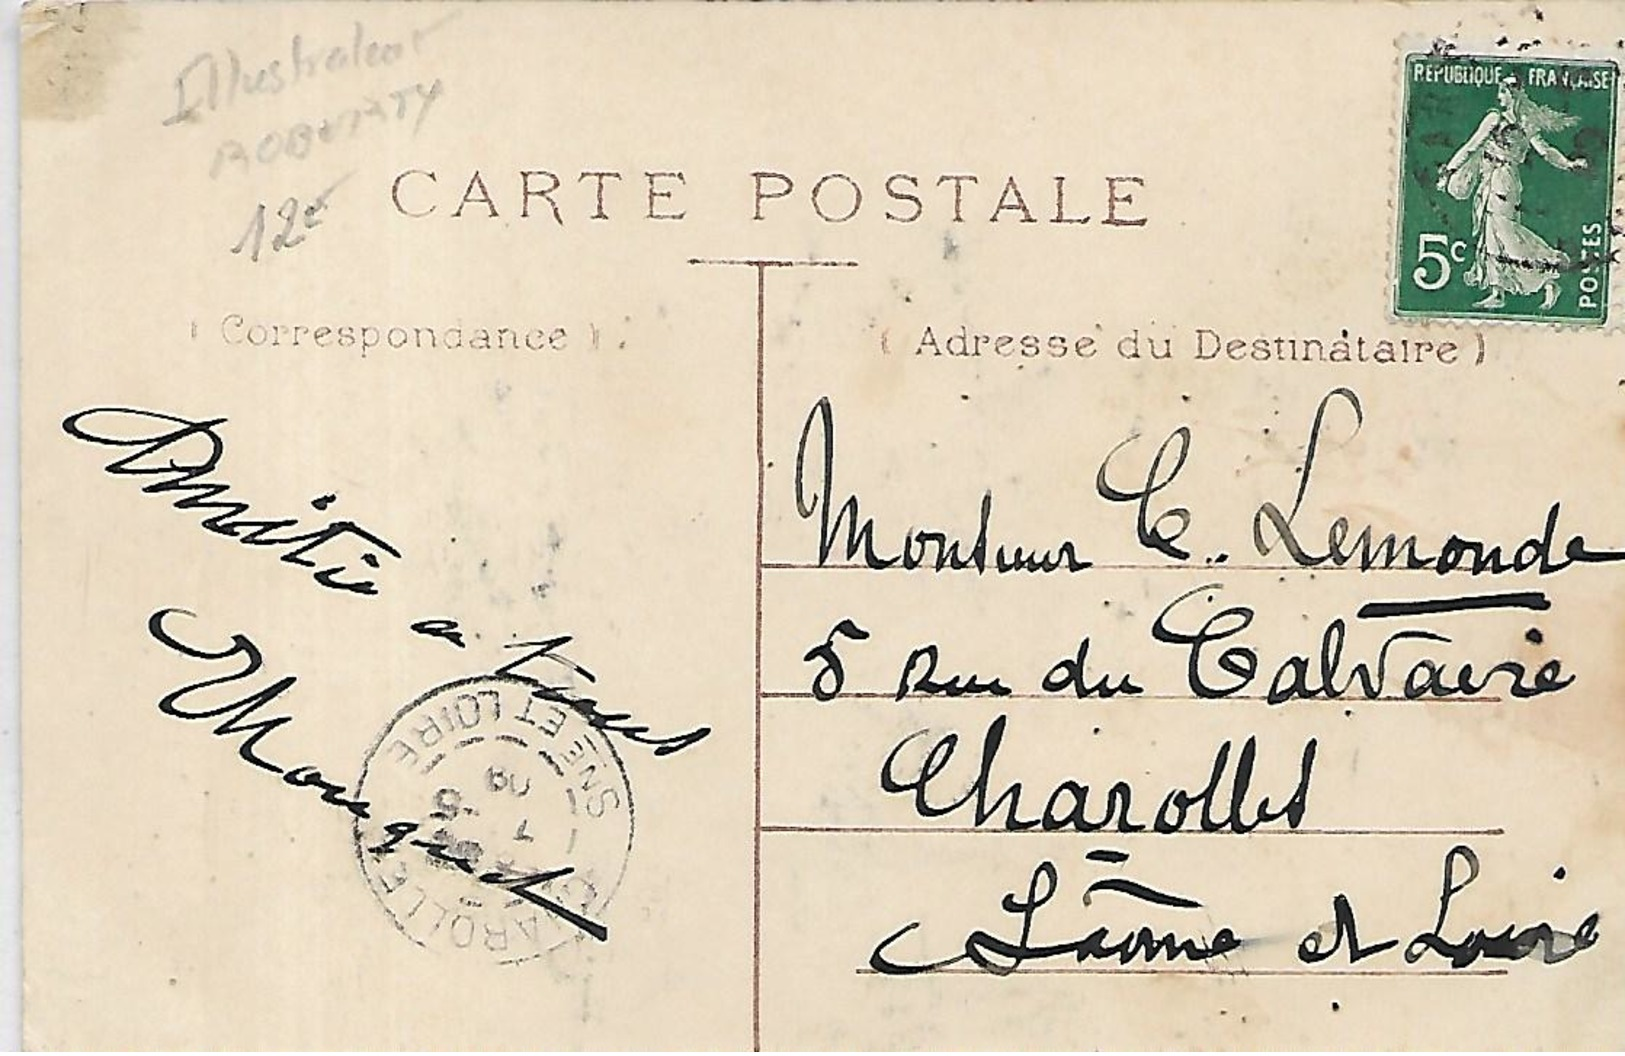 Illustrateur
ROBERTY
12€
CARTE POSTALE
REPUBLIQUE FRANÇAISE
5c
POSTES
( Correspondance )
( Adresse du Destinataire )
Amitié a tous
Monsieur C. Lemonde
5 Rue du Calvaire
Charolles
Saône et Loire
CHAROLLES
SNE ET LOIRE
09